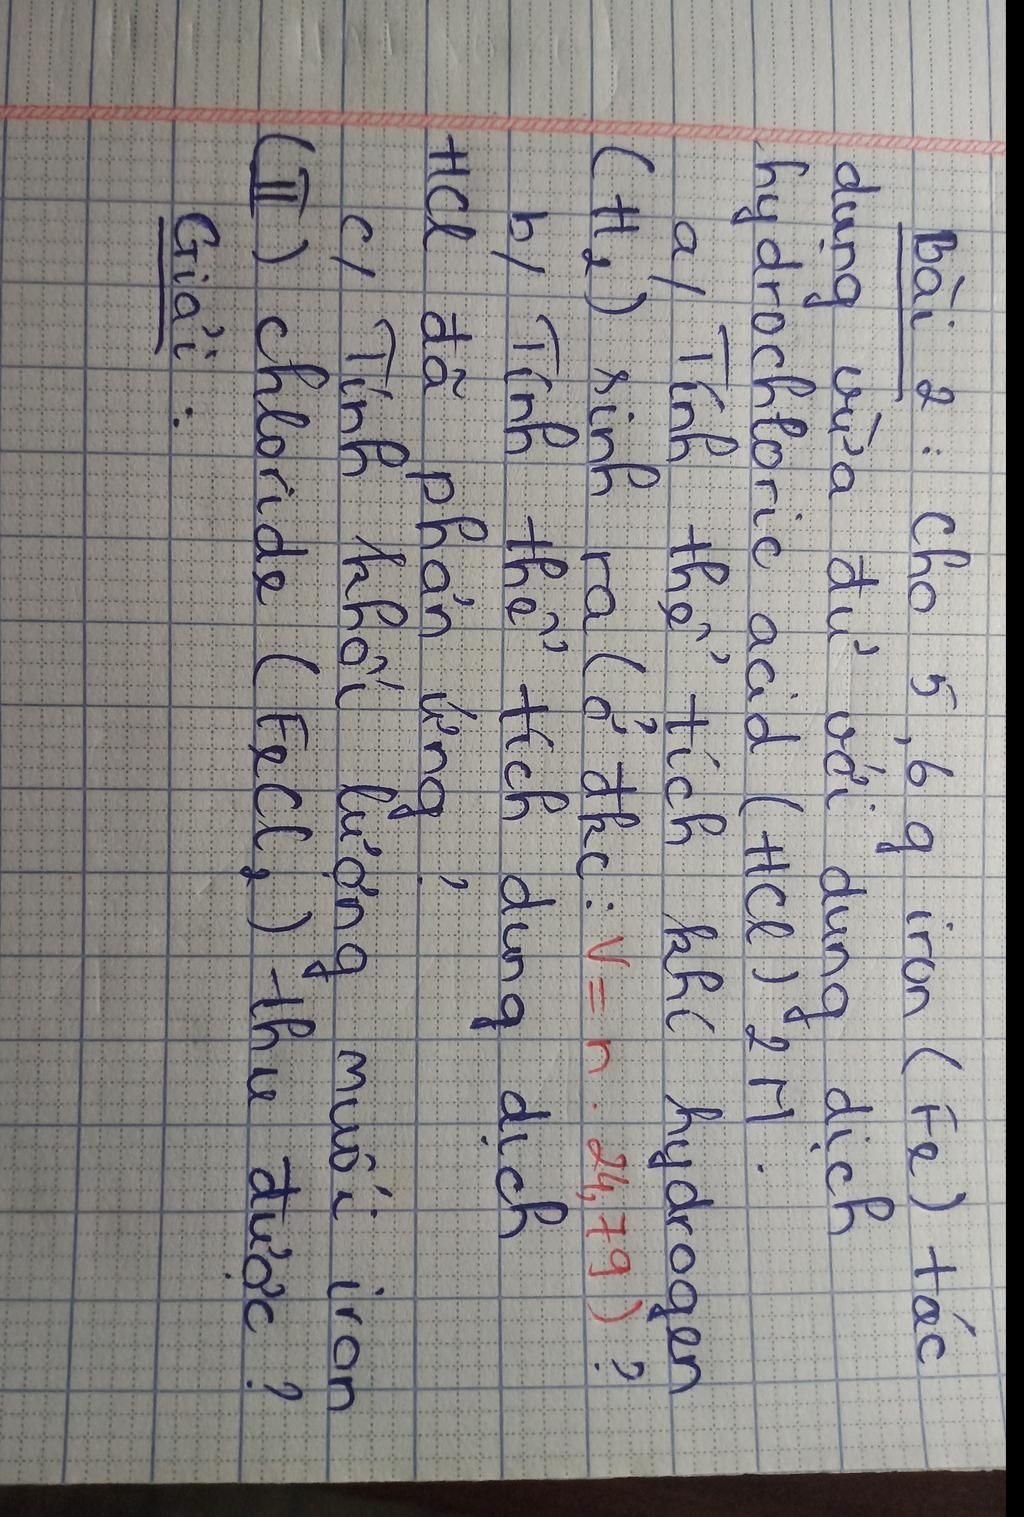 Bài 2: Cho 5,6 g iron (Fe) tác
dụng vừa đủ với dung dịch
hydrochloric acid (HCl) 2M.
a/ Tính thể tích khí hydrogen
(H₂) sinh ra (ở đkc: V = n. 24,79)?
b/ Tính thể tích dung dịch
HCl đã phản ứng?
c/ Tính khối lượng muối iron
(II) chloride (FeCl₂) thu được?
Giải: